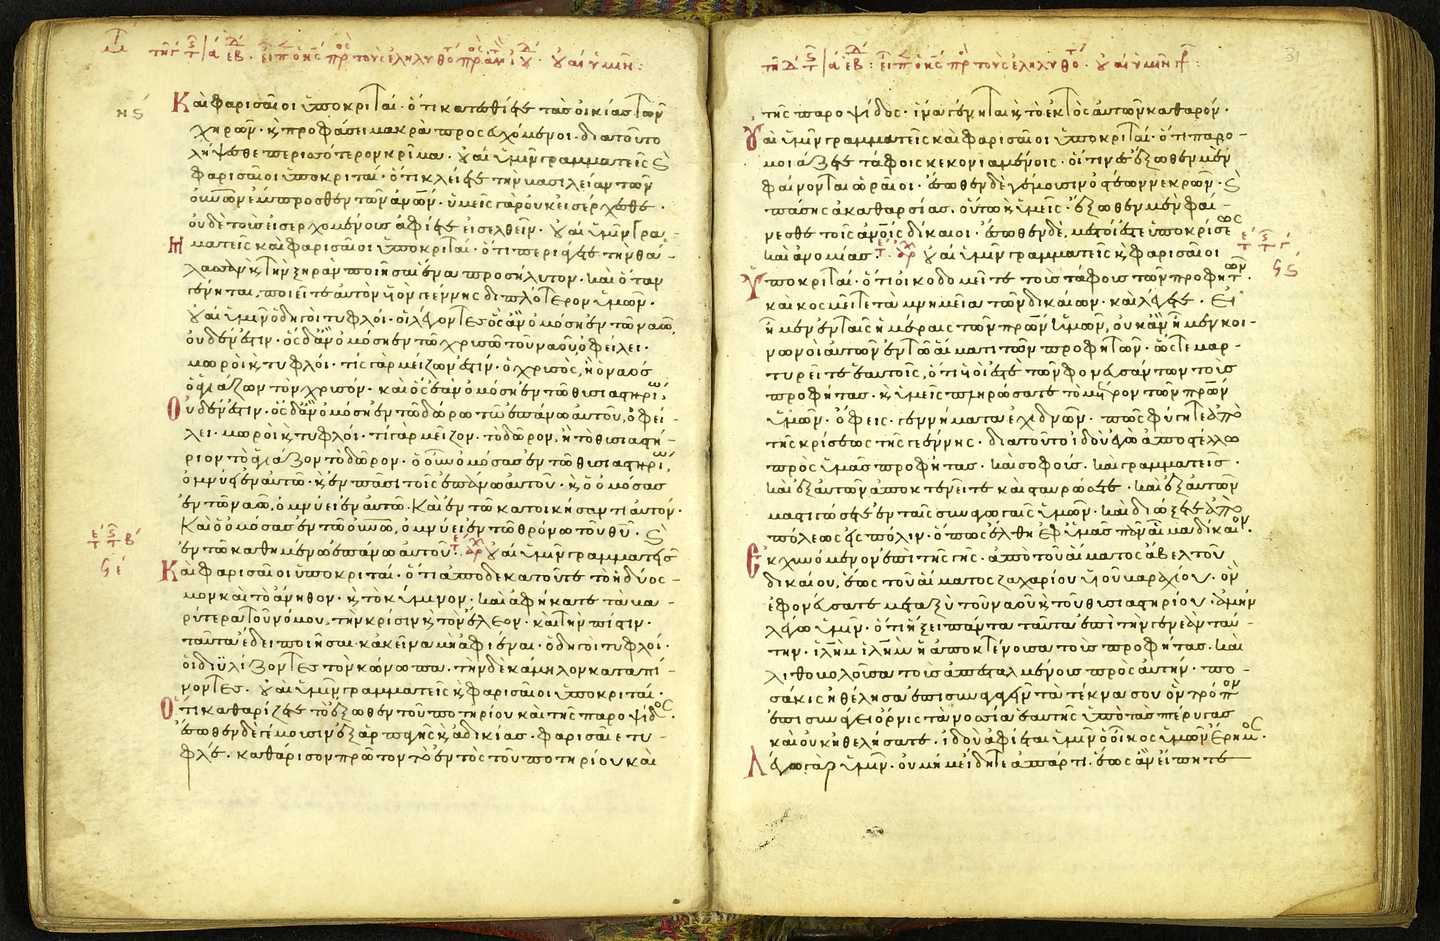 Καὶ φαρισαῖοι ὑποκριταί· ὅτι κατεσθίετε τὰς οἰκίας τῶν
χηρῶν· καὶ προφάσει μακρὰ προσευχόμενοι· διατοῦτο
λήψεσθε περισσότερον κρῖμα· οὐαὶ ὑμῖν γραμματεῖς καὶ
φαρισαῖοι ὑποκριταί· ὅτι κλείετε τὴν βασιλείαν τῶν
οὐνῶν ἔμπροσθεν τῶν ἀνῶν· ὑμεῖς γὰρ οὐκ εἰσέρχεσθε·
οὐδὲ τοὺς εἰσερχομένους ἀφίετε εἰσελθεῖν· οὐαὶ ὑμῖν γραμ
ματεῖς καὶ φαρισαῖοι ὑποκριταί· ὅτι περιάγετε τὴν θά-
λασσαν καὶ τὴν ξηρὰν ποιῆσαι ἕνα προσήλυτον· καὶ ὅταν
γένηται, ποιεῖτε αὐτὸν υἱὸν γεέννης διπλότερον ὑμῶν·
οὐαὶ ὑμῖν ὁδηγοὶ τυφλοί· οἱ λέγοντες ὃς ἂν ὀμόσῃ ἐν τῷ ναῷ,
οὐδέν ἐστιν· ὃς δ' ἂν ὀμόσῃ ἐν τῷ χρυσῷ τοῦ ναοῦ, ὀφείλει·
μωροὶ καὶ τυφλοί· τίς γὰρ μείζων ἐστίν· ὁ χρυσός, ἢ ὁ ναὸς
ὁ ἁγιάζων τὸν χρυσόν· καὶ ὃς ἐὰν ὀμόσῃ ἐν τῷ θυσιαστηρίῳ,
Οὐδέν ἐστιν· ὃς δ' ἂν ὀμόσῃ ἐν τῷ δώρῳ τῷ ἐπάνω αὐτοῦ, ὀφεί-
λει· μωροὶ καὶ τυφλοί· τί γὰρ μεῖζον· τὸ δῶρον, ἢ τὸ θυσιαστή-
ριον τὸ ἁγιάζον τὸ δῶρον· ὁ οὖν ὀμόσας ἐν τῷ θυσιαστηρίῳ,
ὀμνύει ἐν αὐτῷ· καὶ ἐν πᾶσι τοῖς ἐπάνω αὐτοῦ· καὶ ὁ ὀμόσας
ἐν τῷ ναῷ, ὀμνύει ἐν αὐτῷ· Καὶ ἐν τῷ κατοικήσαντι αὐτόν·
Καὶ ὁ ὀμόσας ἐν τῷ οὐνῷ, ὀμνύει ἐν τῷ θρόνῳ τοῦ θῦ· καὶ
ἐν τῷ καθημένῳ ἐπάνω αὐτοῦ· οὐαὶ ὑμῖν γραμματεῖς
Καὶ φαρισαῖοι ὑποκριταί· ὅτι ἀποδεκατοῦτε τὸ ἡδύος-
μον καὶ τὸ ἄνηθον· καὶ τὸ κύμινον· καὶ ἀφήκατε τὰ βα-
ρύτερα τοῦ νόμου, τὴν κρίσιν καὶ τὸν ἔλεον· καὶ τὴν πίστιν·
ταῦτα ἔδει ποιῆσαι· κἀκεῖνα μὴ ἀφιέναι· ὁδηγοὶ τυφλοί·
οἱ διϋλίζοντες τὸν κώνωπα· τὴν δὲ κάμηλον καταπί-
νοντες· οὐαὶ ὑμῖν γραμματεῖς καὶ φαρισαῖοι ὑποκριταί·
Ὅτι καθαρίζετε τὸ ἔξωθεν τοῦ ποτηρίου καὶ τῆς παροψίδος·
ἔσωθεν δὲ γέμουσιν ἐξ ἁρπαγῆς καὶ ἀδικίας· φαρισαῖε τυ-
φλέ· καθάρισον πρῶτον τὸ ἐντὸς τοῦ ποτηρίου καὶ
τῆς παροψίδος· ἵνα γένηται καὶ τὸ ἐκτὸς αὐτῶν καθαρόν·
Οὐαὶ ὑμῖν γραμματεῖς καὶ φαρισαῖοι ὑποκριταί· ὅτι παρο-
μοιάζετε τάφοις κεκονιαμένοις· οἵτινες ἔξωθεν μὲν
φαίνονται ὡραῖοι· ἔσωθεν δὲ γέμουσιν ὀστέων νεκρῶν· καὶ
πάσης ἀκαθαρσίας. οὕτω καὶ ὑμεῖς· ἔξωθεν μὲν φαί-
νεσθε τοῖς ἀνοῖς δίκαιοι· ἔσωθεν δέ, μεστοί ἐστε ὑποκρίσεως
καὶ ἀνομίας· οὐαὶ ὑμῖν γραμματεῖς καὶ φαρισαῖοι
Ὑποκριταί· ὅτι οἰκοδομεῖτε τοὺς τάφους τῶν προφητῶν·
καὶ κοσμεῖτε τὰ μνημεῖα τῶν δικαίων· καὶ λέγετε· Εἰ
ἦμεν ἐν ταῖς ἡμέραις τῶν πρῶν ἡμῶν, οὐκ ἂν ἦμεν κοι-
νωνοὶ αὐτῶν ἐν τῷ αἵματι τῶν προφητῶν· ὥστε μαρ-
τυρεῖτε ἑαυτοῖς, ὅτι υἱοί ἐστε τῶν φονευσάντων τοὺς
προφήτας· καὶ ὑμεῖς πληρώσατε τὸ μέτρον τῶν πρῶν
ὑμῶν· ὄφεις· γεννήματα ἐχιδνῶν· πῶς φύγητε ἀπὸ
τῆς κρίσεως τῆς γεέννης· διατοῦτο ἰδοὺ ἐγὼ ἀποστέλλω
πρὸς ὑμᾶς προφήτας· καὶ σοφούς· καὶ γραμματεῖς·
καὶ ἐξ αὐτῶν ἀποκτενεῖτε καὶ σταυρώσετε· καὶ ἐξ αὐτῶν
μαστιγώσετε ἐν ταῖς συναγωγαῖς ὑμῶν· καὶ διώξετε ἀπὸ
πόλεως εἰς πόλιν· ὅπως ἔλθῃ ἐφ' ὑμᾶς πᾶν αἷμα δίκαιον·
Ἐκχυνόμενον ἐπὶ τῆς γῆς· ἀπὸ τοῦ αἵματος ἄβελ τοῦ
δικαίου, ἕως τοῦ αἵματος ζαχαρίου υἱοῦ βαραχίου· ὃν
ἐφονεύσατε μεταξὺ τοῦ ναοῦ καὶ τοῦ θυσιαστηρίου· ἀμὴν
λέγω ὑμῖν· ὅτι ἥξει πάντα ταῦτα ἐπὶ τὴν γενεὰν ταύ-
την· ἱλὴμ ἱλὴμ ἡ ἀποκτένουσα τοὺς προφήτας· καὶ
λιθοβολοῦσα τοὺς ἀπεσταλμένους πρὸς αὐτήν· πο-
σάκις ἠθέλησα ἐπισυναγαγεῖν τὰ τέκνα σου ὃν τρόπον
ἐπισυνάγει ὄρνις τὰ νοσσία ἑαυτῆς ὑπὸ τὰς πτέρυγας
καὶ οὐκ ἠθελήσατε· ἰδοὺ ἀφίεται ὑμῖν ὁ οἶκος ὑμῶν ἔρημος·
Λέγω γὰρ ὑμῖν· οὐ μή με ἴδητε ἀπάρτι· ἕως ἂν εἴπητε